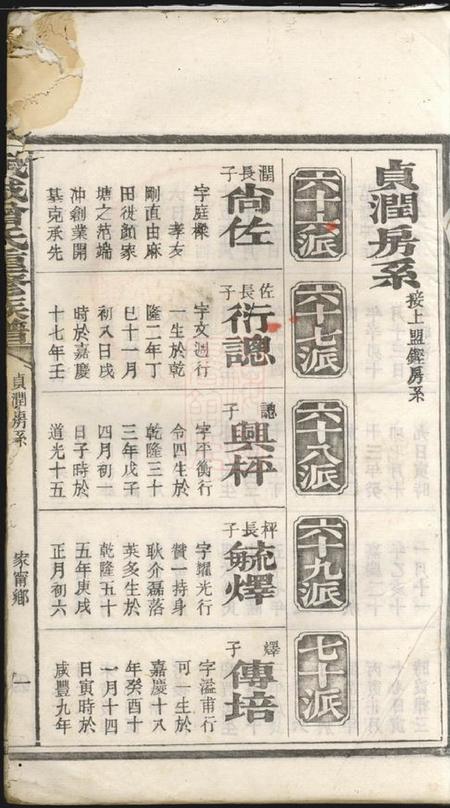 貞潤房系 接上盟鏗房系
六十六派
潤長子
尙佐
字庭樑
孝友
剛直由麻
田徙顏家
塘之范端
冲創業開
基克承先
六十七派
佐長子
衍總
字文週行
一生於乾
隆二年丁
巳十一月
初八日戌
時於嘉慶
十七年壬
六十八派
總子
興枰
字平衡行
令四生於
乾隆三十
三年戊子
四月初二
日子時於
道光十五
六十九派
枰長子
毓燡
字耀光行
贊一持身
耿介磊落
英多生於
乾隆五十
五年庚戌
正月初六
七十派
燡子
傳培
字溢甫行
可一生於
嘉慶十八
年癸酉十
一月十四
日寅時於
咸豐九年
曾氏重修族譜
貞潤房系
家甯鄉
一